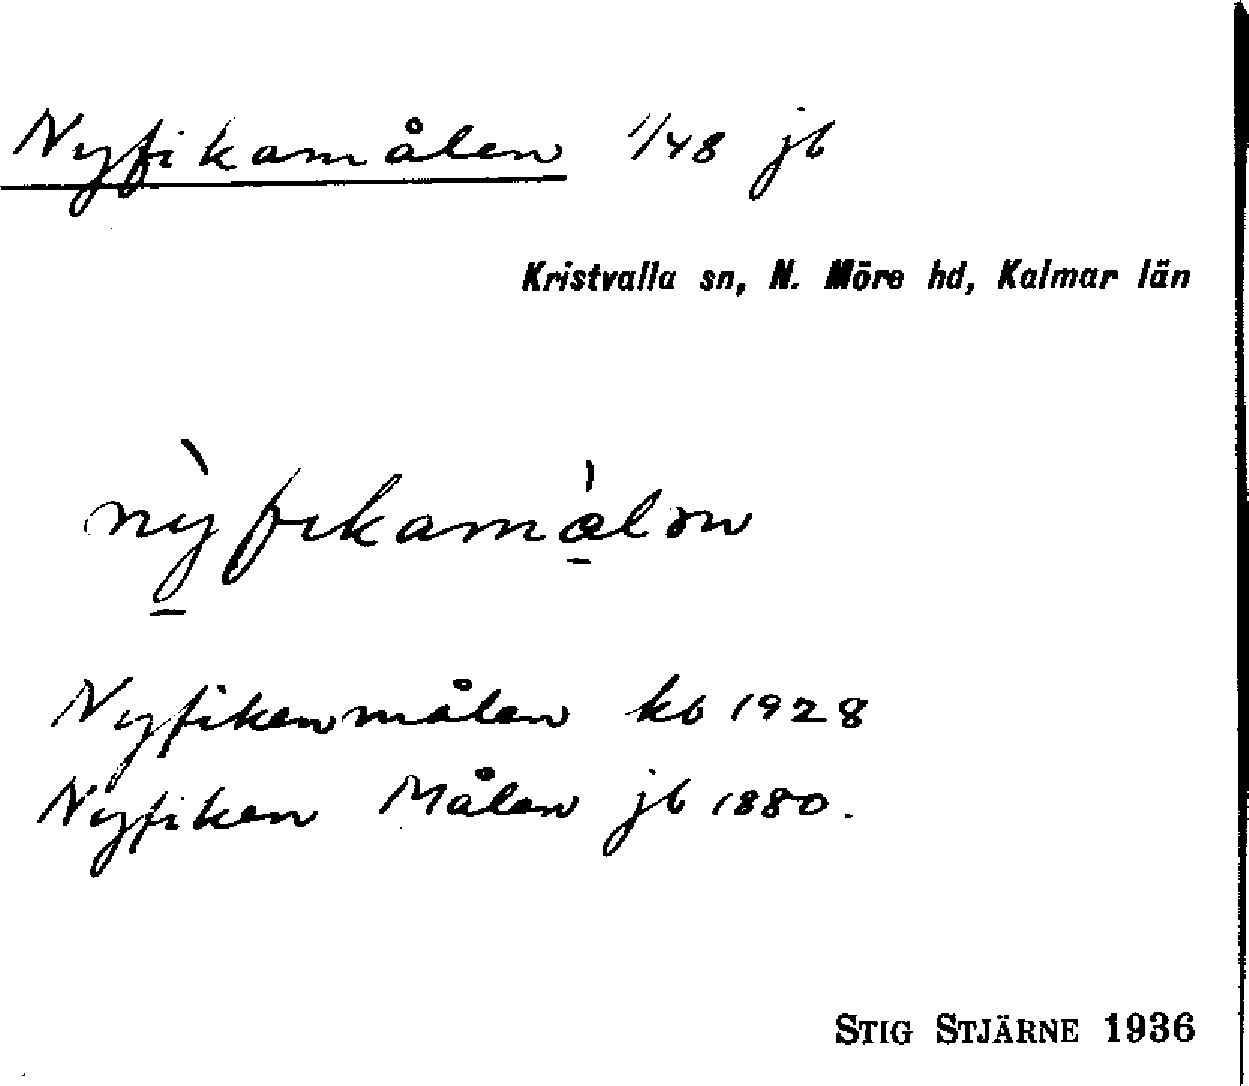 Nyfikamålen 1/48 jb
Kristvalla sn, N. Möre hd, Kalmar län
nỳfikamàlən
Nyfikenmålen kb 1928
Nyfiken Målen jb 1880.
STIG STJÄRNE 1936